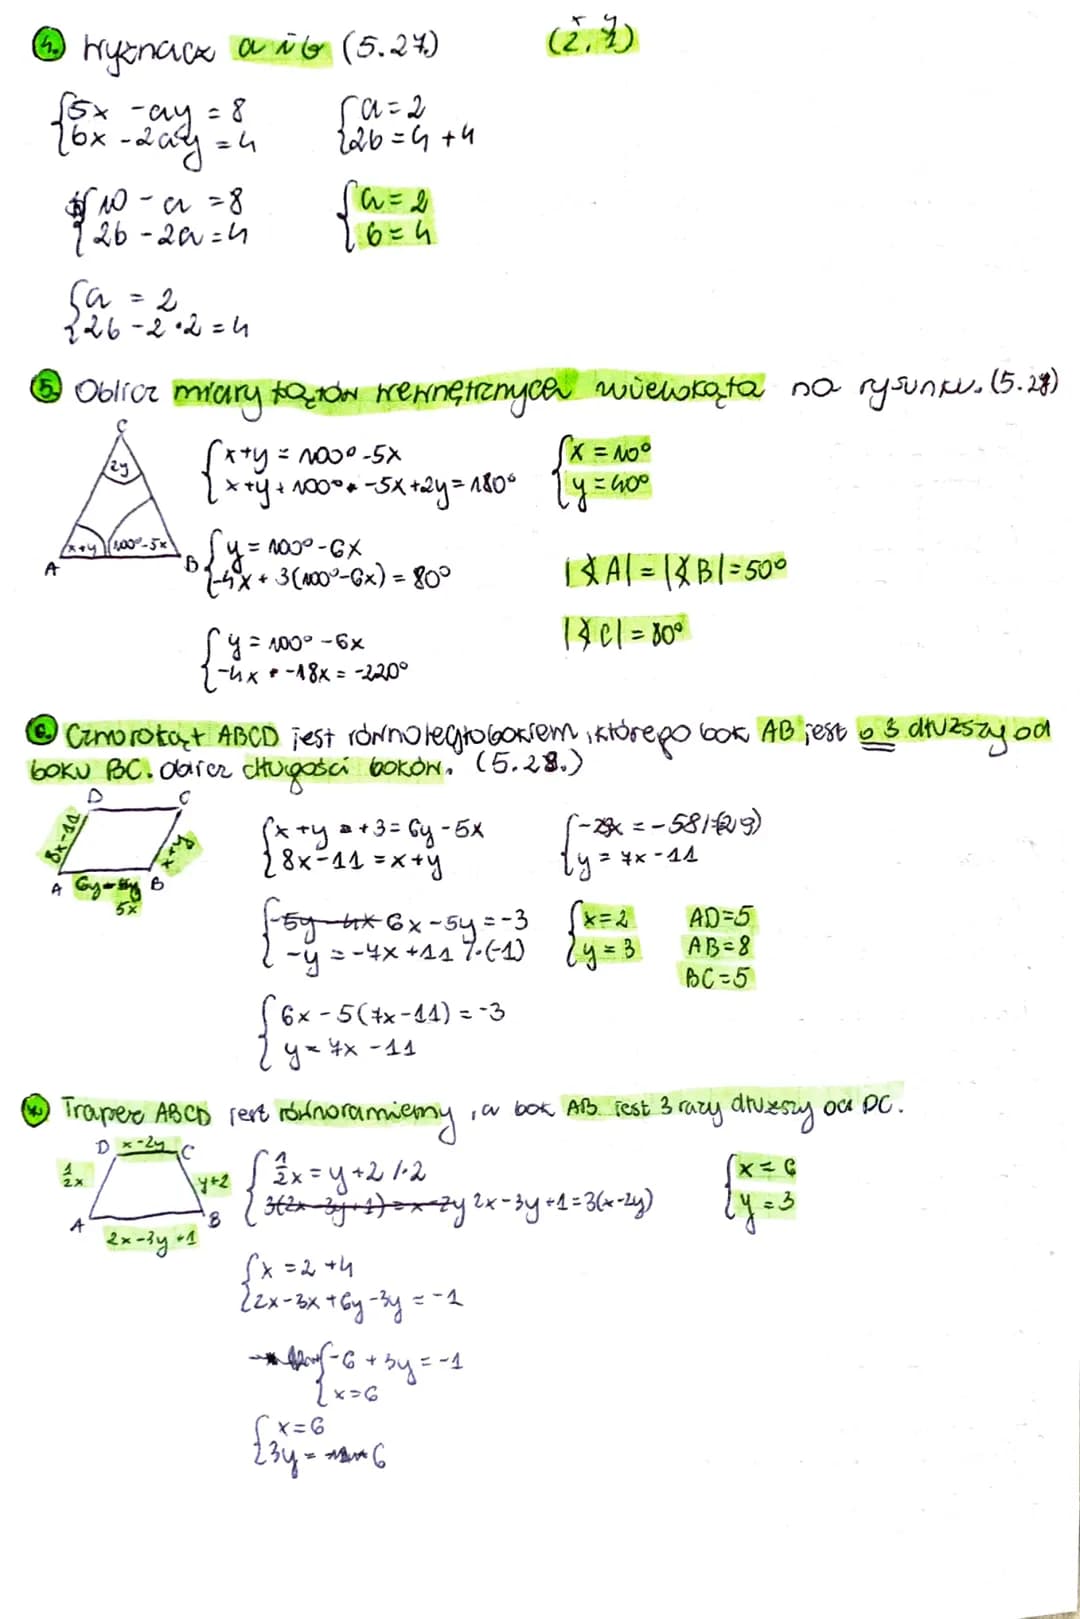 4. Wyznacz a i b (5.27.)
x y
(2, 1)
{5x - ay = 8
{bx - 2ay = 4
{10 - a = 8
{2b - 2a = 4
{a = 2
{2b - 2·2 = 4
{a = 2
{2b = 4 + 4
{a = 2
{b = 4
5. Oblicz miary kątów wewnętrznych wielokąta na rysunku. (5.27)
C
2y
x+y
100°-5x
A
B
{x+y = 100° -5x
{x+y+100° -5x+2y = 180°
{y = 100° -6x
{-4x + 3(100°-6x) = 80°
{y = 100° -6x
{-4x -18x = -220°
{x = 10°
{y = 40°
|∡A| = |∡B| = 50°
|∡C| = 80°
6. Czworokąt ABCD jest równoległobokiem, którego bok AB jest o 3 dłuższy od
boku BC. oblicz długości boków. (5.28.)
D
C
8x-11
x+y
A
6y-
5x
B
{x+y+3 = 6y-5x
{8x-11 = x+y
{5y-4x 6x-5y = -3
{-y = -7x+11 /·(-1)
{6x - 5(7x-11) = -3
{y = 7x -11
{-29x = -58/:(-29)
{y = 7x -11
{x=2
{y = 3
AD=5
AB=8
BC=5
7. Trapez ABCD jest równoramienny, a bok AB jest 3 razy dłuższy od DC.
D
x-2y
C
1/2x
y+2
A
B
2x-3y+1
{1/2x = y+2 /·2
{3(2x-3y+1) = x-2y 2x-3y+1 = 3(x-2y)
{x = 2 +4
{2x-3x+6y-3y = -1
{-6 + 3y = -1
{x=6
{x=6
{3y = 6
{x = 6
{y = 3